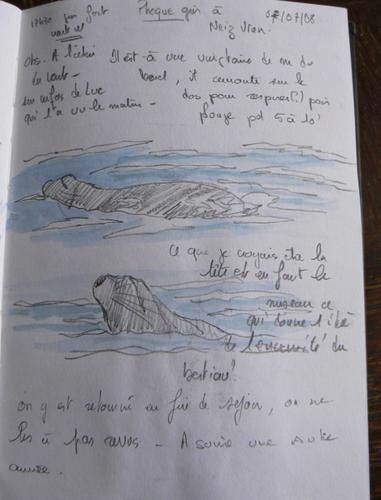 Phoque gris à
Neiz Vran.
07/07/08
17h30
vent
Obs. A l'œil
Il est à une vingtaine de m du
bord, il remonte sur le
sur infos de Luc
dos pour respirer(?) puis
qui l'a vu le matin -
plonge pd 5 à 10'
ce que je croyais être la
tête est en fait le
museau ce
qui donne l'idée
de l'énormité du
bestiau!
on y est retourné en fin de séjour, on ne
l'a pas revu - A suivre une autre
année.